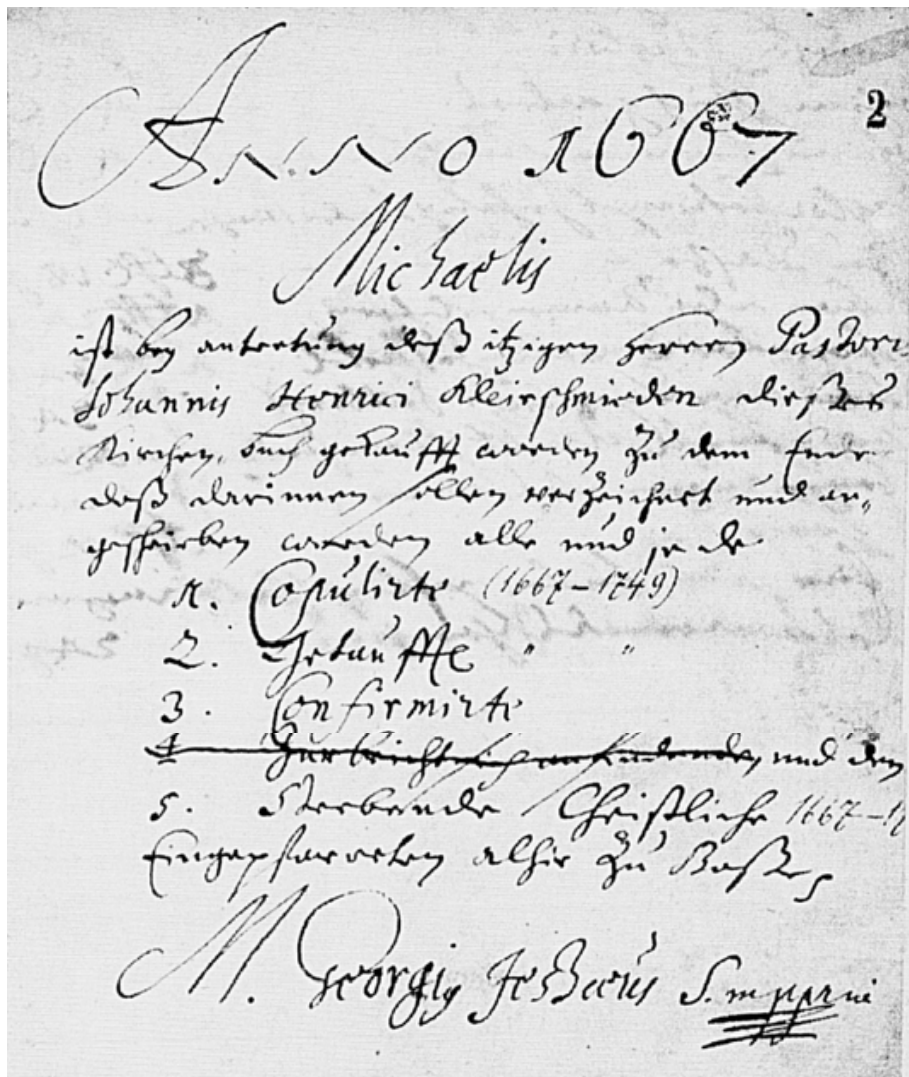 2
ANNO 1667
Michaelis
ist bey antretung deß itzigen Herren Pastoris
Johannis Henrici Kleinschmieden dieses
Kirchen, buch gekaufft worden zu dem Ende
daß darinnen sollen verzeichnet und an„
geschrieben werden alle und jede
1. Copulirte (1667–1749)
2. Getauffte " "
3. Confirmirte
4 Zur beicht sich anfindenden und dem
5. Sterbende Christliche 1667–
Eingepfarreten alhie zu
M. Georgiy S. mppria